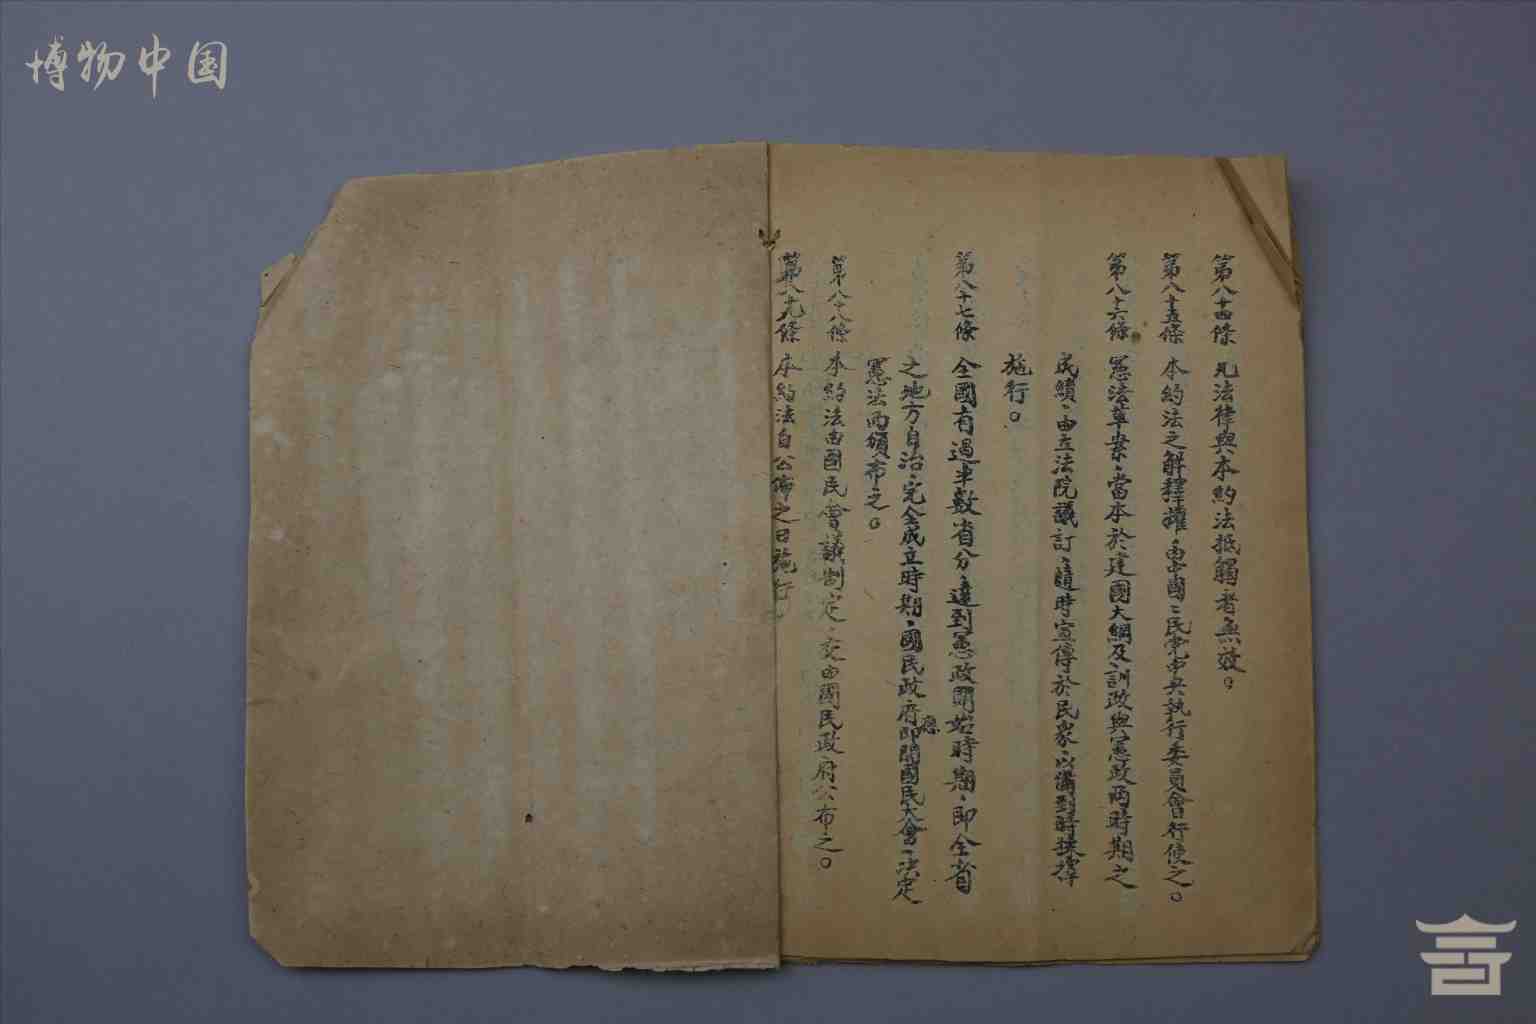 博物中国
第八十四條 凡法律與本約法抵觸者無效。
第八十五條 本約法之解釋權、由中國國民黨中央執行委員會行使之。
第八十六條 憲法草案、當本於建國大綱及訓政與憲政兩時期之
民績、由立法院議訂、隨時宣傳於民衆、以備到時採擇
施行。
第八十七條 全國有過半數省分、達到憲政開始時期、即全省
之地方自治、完全成立時期、國民政府應即開國民大會、決定
憲法而頒布之。
第八十八條 本約法由國民會議制定、交由國民政府公布之。
第八十九條 本約法自公佈之日施行。